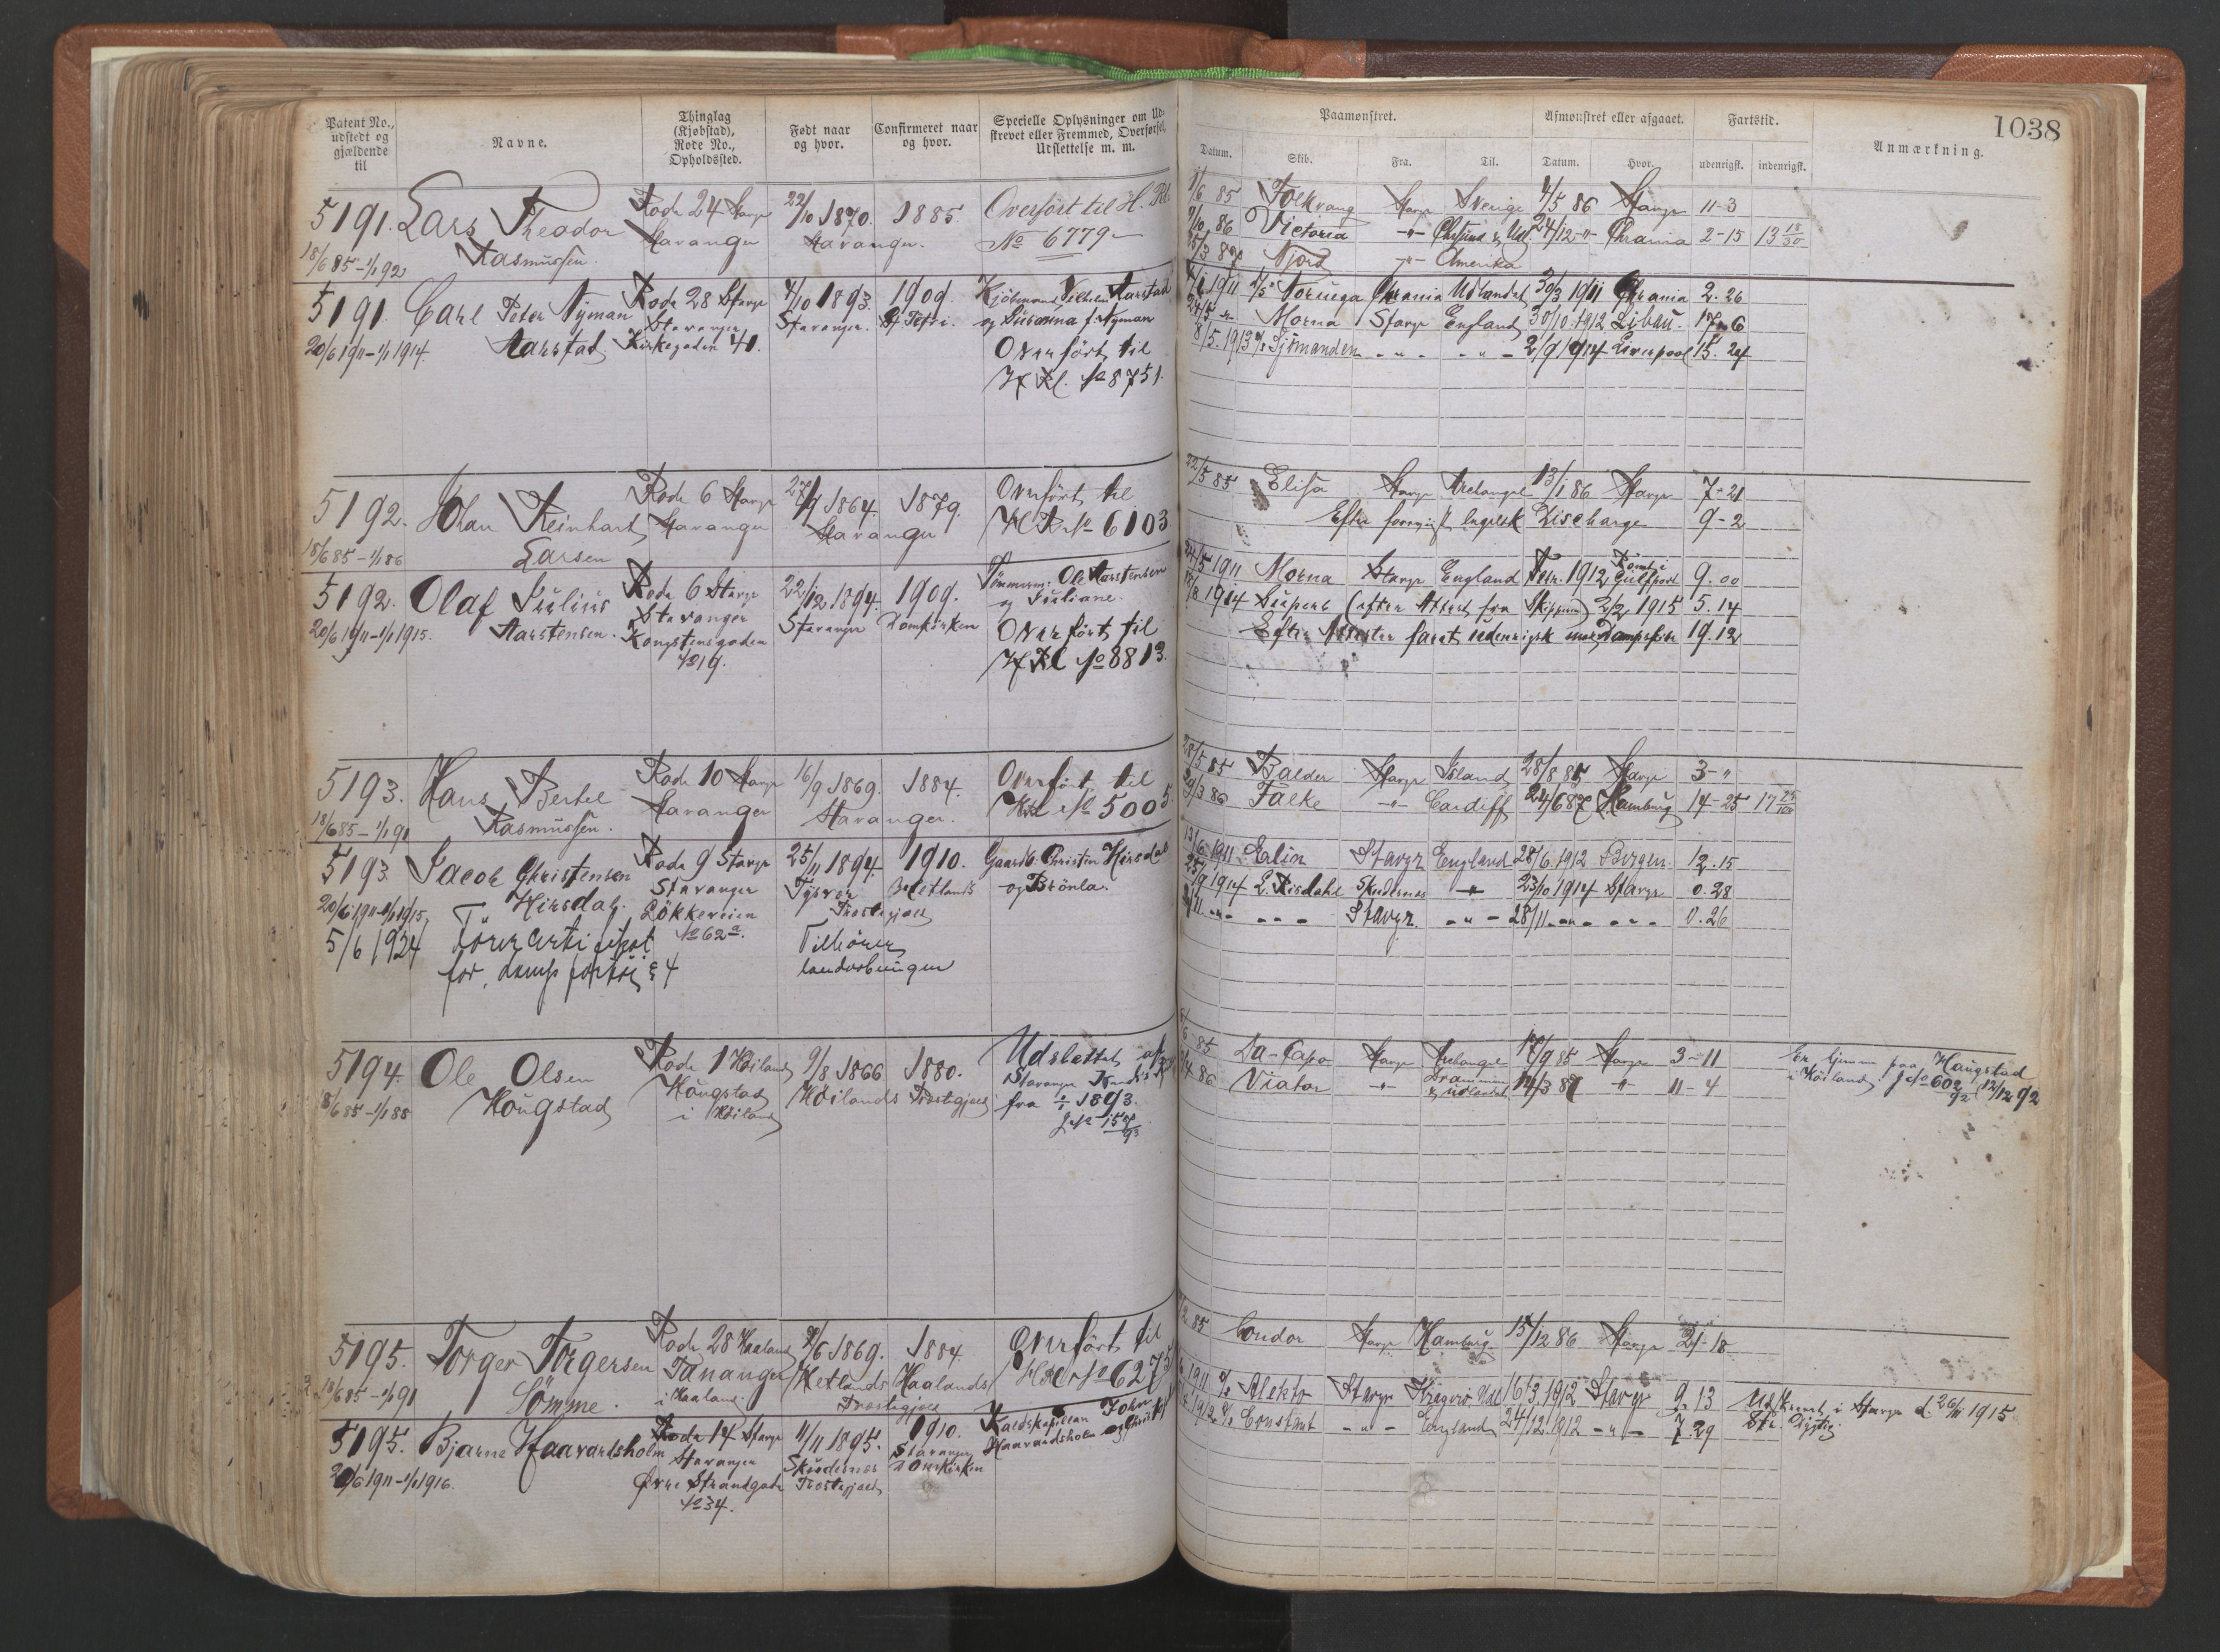 1038
Patent No.,
udstedt og
gjældende
til
Navne.
Thinglag
(Kjøbstad),
Rode No.,
Opholdssted.
Født naar
og hvor.
Confirmeret naar
og hvor.
Specielle Oplysninger om Ud-
skrevet eller Fremmed, Overførsel,
Udslettelse m. m.
Paamønstret.
Afmønstret eller afgaaet.
Fartstid.
Anmærkning.
Datum.
Skib.
Fra.
Til.
Datum.
Hvor.
udenrigsk.
indenrigsk.
5191. Lars Theodor
Rasmussen.
18/6 85 - 1/1 92
Rode 24 Stavgr
Stavanger
22/10 1870.
Stavanger.
1885.
Overført til H. Rl.
No 6779
1/6 85 Folkvang Stavgr Sverige 4/5 86 Stavgr 11-3
9/10 86 Victoria -"- 24/12 -"- Chrania 2-15 13 18/30
25/3 87 Njord -"- Amerika
5191. Carl Peter Nyman
Aarstad
20/6 1911 - 1/1 1914.
Rode 28 Stavgr
Stavanger
Kirkegaden 41.
4/10 1893.
Stavanger.
1909.
St. Petri.
Aarstad
og Susanna f. Nyman
Overført til
H Rl. No 8751.
1911 Noruega Chrania Udlandet 30/3 1911 Chrania 2. 26
24/5 -"- Morna Stavgr England 30/10 1912 Libau. 17. 6
8/5 1913 Sjömanden -"- -"- 2/9 1914 Liverpool 15. 24
5192. Johan Reinhart
Larsen
18/6 85 - 1/1 86
Rode 6 Stavgr
Stavanger
27/9 1864.
Stavanger
1879.
Overført til
H Rl No 6103
22/5 85 Elisa Stavgr Archangel 13/1 86 Stavgr 7-21
Efter foreviist engelsk Discharge 9-2
5192. Olaf Julius
Aarstensen.
20/6 1911 - 1/1 1915.
Rode 6 Stavgr
Stavanger
Kongsteinsgaden
No 19.
22/12 1894.
Stavanger
1909.
Domkirken
Tömmerm. Ole Aarstensen
og Juliane.
Overført til
H Rl No 8813.
24/5 1911 Morna Stavgr England Febr. 1912 Römt i Gulfport 9. 00
1914 Superb (efter Attest fra Skipperen) 2/2 1915 5. 14
Efter Attester faret udenrigsk med Dampskibe 19. 12
5193. Hans Bertel
Rasmussen.
18/6 85 - 1/1 91
Rode 10 Stavgr
Stavanger
16/9 1869.
Stavanger.
1884.
Overført til
H Rl No 5005
28/5 85 Balder Stavgr Island 28/8 85 Stavgr 3-"
29/3 86 Falke -"- Cardiff 24/6 87 Hamburg 14-25 17
5193. Jacob Christensen
Hirsdal.
20/6 1911 - 1/1 1915.
5/6 1924 Förercertifikat
for dampfartöi
Rode 9 Stavgr
Stavanger
Lökkeveien
No 62a.
25/11 1894.
Tysvær
Prestegjæld
Tilhörer
landværnet
1910.
Hetlands
Gaardb. Christen Hirsdal
og Brönla.
13/6 1911 Elin Stavgr England 28/6 1912 Bergen 12. 15
25/9 1914 L. Risdahl Skudesnes -"- 23/10 1914 Stavgr 0. 28
-"- -"- Stavgr. -"- 28/11 -"- -"- 0. 26
5194. Ole Olsen
Hougstad
18/6 85 - 1/1 88
Rode 1 Höiland
Hougstad
i Höiland
9/8 1866
Höilands Prestegjæld
1880.
Udslettet af
Stavanger
fra 1/1 1893.
J. No 157/93
/6 85 Da-Capo Stavgr Archangel 17/9 85 Stavgr 3-11
/4 86 Viator -"- Drammen & udlandet 14/3 87 -"- 11-4
Er hjemme paa Haugstad
i Höiland. J No 602/92 12/12 92
5195. Torger Torgersen
Sömme.
18/6 85 - 1/1 91
Rode 28 Haaland
Tananger
i Haaland.
2/6 1869.
Hetlands
Prestegjæld
1884.
Haalands
Overført til
H Rl No 627
85 Condor Stavgr Hamburg 15/12 86 Stavgr 21-18
5195. Bjarne Haavardsholm
20/6 1911 - 1/1 1916.
Rode 14 Stavgr
Stavanger
Øvre Strandgade
No 34.
11/11 1895.
Skudesnes
Prestegjæld
1910.
Stavanger
Domkirken
Kaldskapellan John
Haavardsholm og
1911 Alekto Stavgr Kragerö Udl 16/3 1912 Stavgr 9. 13
1912 Constant -"- England 24/12 1912 -"- 7. 29
Udskrevet i Stavgr d. 26/11 1915